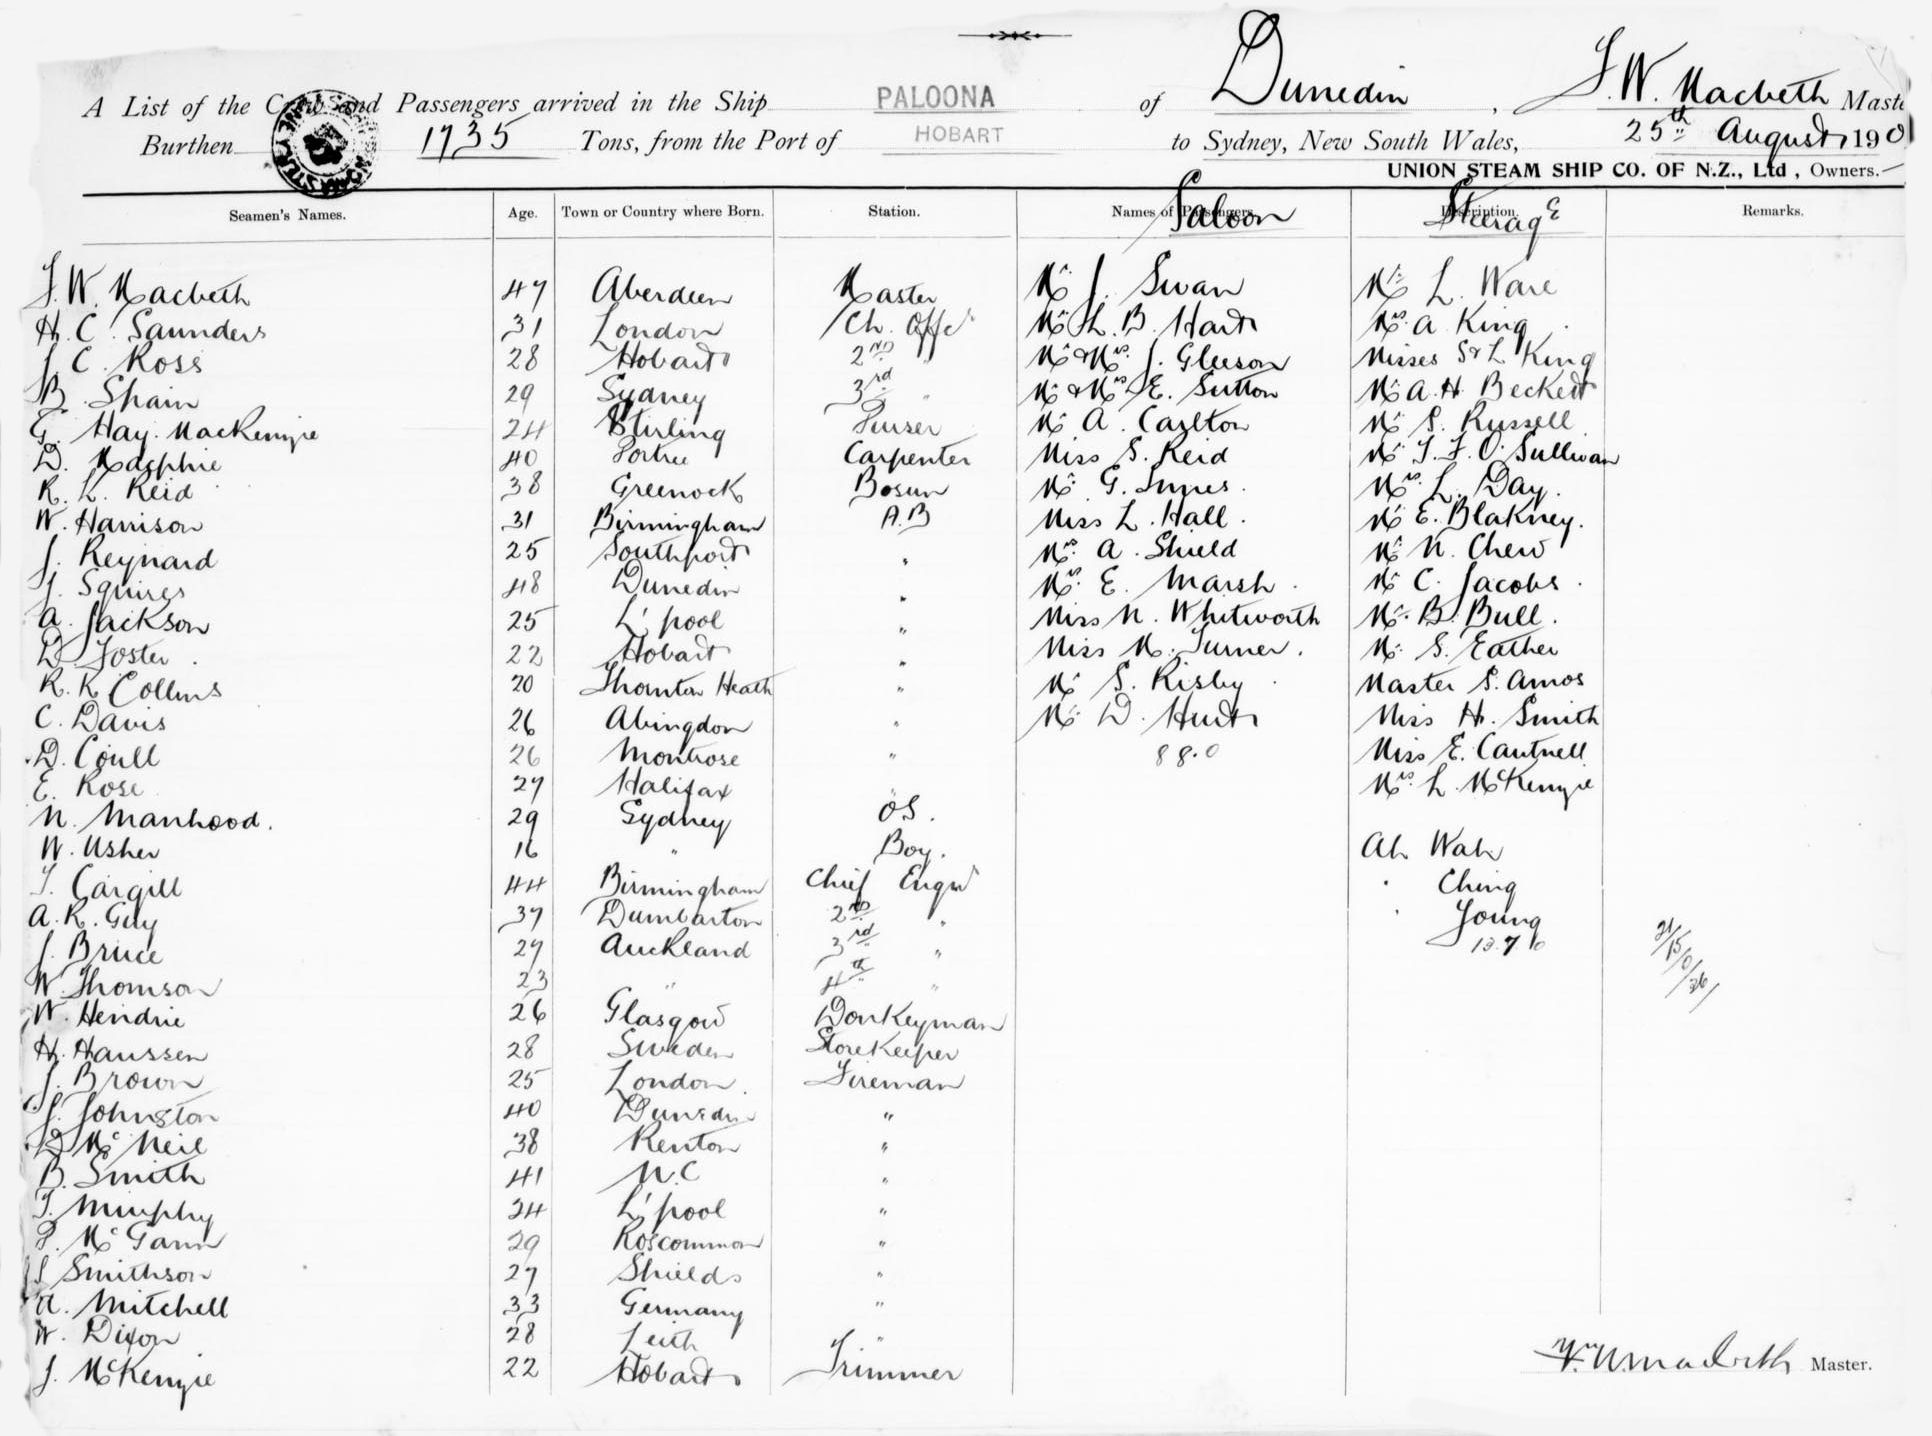 A List of the Crew and Passengers arrived in the Ship PALOONA of Dunedin, J. W. Macbeth Master
Burthen 1735 Tons, from the Port of HOBART to Sydney, New South Wales, 25th August 190
UNION STEAM SHIP CO. OF N.Z., Ltd, Owners.
Seamen's Names. Age. Town or Country where Born. Station. Names of Passengers Saloon Description. Steerage Remarks.
J. W. Macbeth 47 Aberdeen Master Mr J. Swan Mr L. Ware
H. C. Saunders 31 London Ch. Offr Mr L. B. Hart Mrs A King
J. C. Ross 28 Hobart 2nd " Mr & Mrs J. Gleeson Misses S & L King
B. Shain 29 Sydney 3rd " Mr & Mrs E. Sutton Mr A. H. Beckett
G. Hay. MacKenzie 24 Stirling Purser Mr A. Carlton Mr S. Russell
D. Macphie 40 Portree Carpenter Miss S. Reid Mr T. F. O'Sullivan
R. L. Reid 38 Greenock Bosun Mr G. Innes. Mrs L. Day.
W. Harrison 31 Birmingham A.B Miss L. Hall. Mr E. Blakney.
J. Reynard 25 Southport " Mrs A. Shield Mr N. Chew
J. Squires 48 Dunedin " Mrs E. Marsh. Mr C. Jacobs.
A. Jackson 25 L'pool " Miss N. Whitworth Mr B. Bull.
D Foster. 22 Hobart " Miss M. Turner. Mr S. Eather
R. K. Collins 20 Thornton Heath " Mr S. Risby. Master S. Amos
C. Davis 26 Abingdon " Mr D. Hunt Miss H. Smith
D. Coull 26 Montrose " 88.0 Miss E. Cantnell
E. Rose 27 Halifax " Mrs L. McKenzie
N. Manhood. 29 Sydney OS.
W. Usher 16 " Boy. Ah Wah
T. Cargill 44 Birmingham Chief Engr " Ching
A. R. Guy 37 Dumbarton 2nd " " Young
J. Bruce 27 Auckland 3rd " 13.7.0 21/15/0/36/
W. Thomson 23 " 4th "
W. Hendrie 26 Glasgow Donkeyman
H. Haussen 28 Sweden Storekeeper
J. Brown 25 London. Fireman
J. Johnston 40 Dunedin "
D McNeil 38 Renton "
B. Smith 41 N.C "
T. Murphy 24 L'pool "
P. McGann 29 Roscommon "
J Smithson 27 Shields "
A. Mitchell 33 Germany "
W. Dixon 28 Leith "
J. McKenzie 22 Hobart Trimmer
Master.